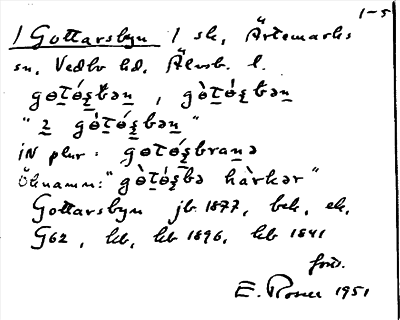 1-5
1 Gottarsbyn 1 sk, Ärtemarks
sn. Vedbo hd. Älvsb. l.
gɵtɵ́s̱bən , gɵ̀tɵ́s̱bən
" 2 gɵ̀tɵ́s̱bən "
iN plur : gɵtɵ́s̱branə
Öknamn: "gɵ̀tɵ́s̱bə hàrkər"
Gottarsbyn jb 1877, bek, ek,
G62, kb, kb 1896, kb 1841
ford.
E. Rosell 1951